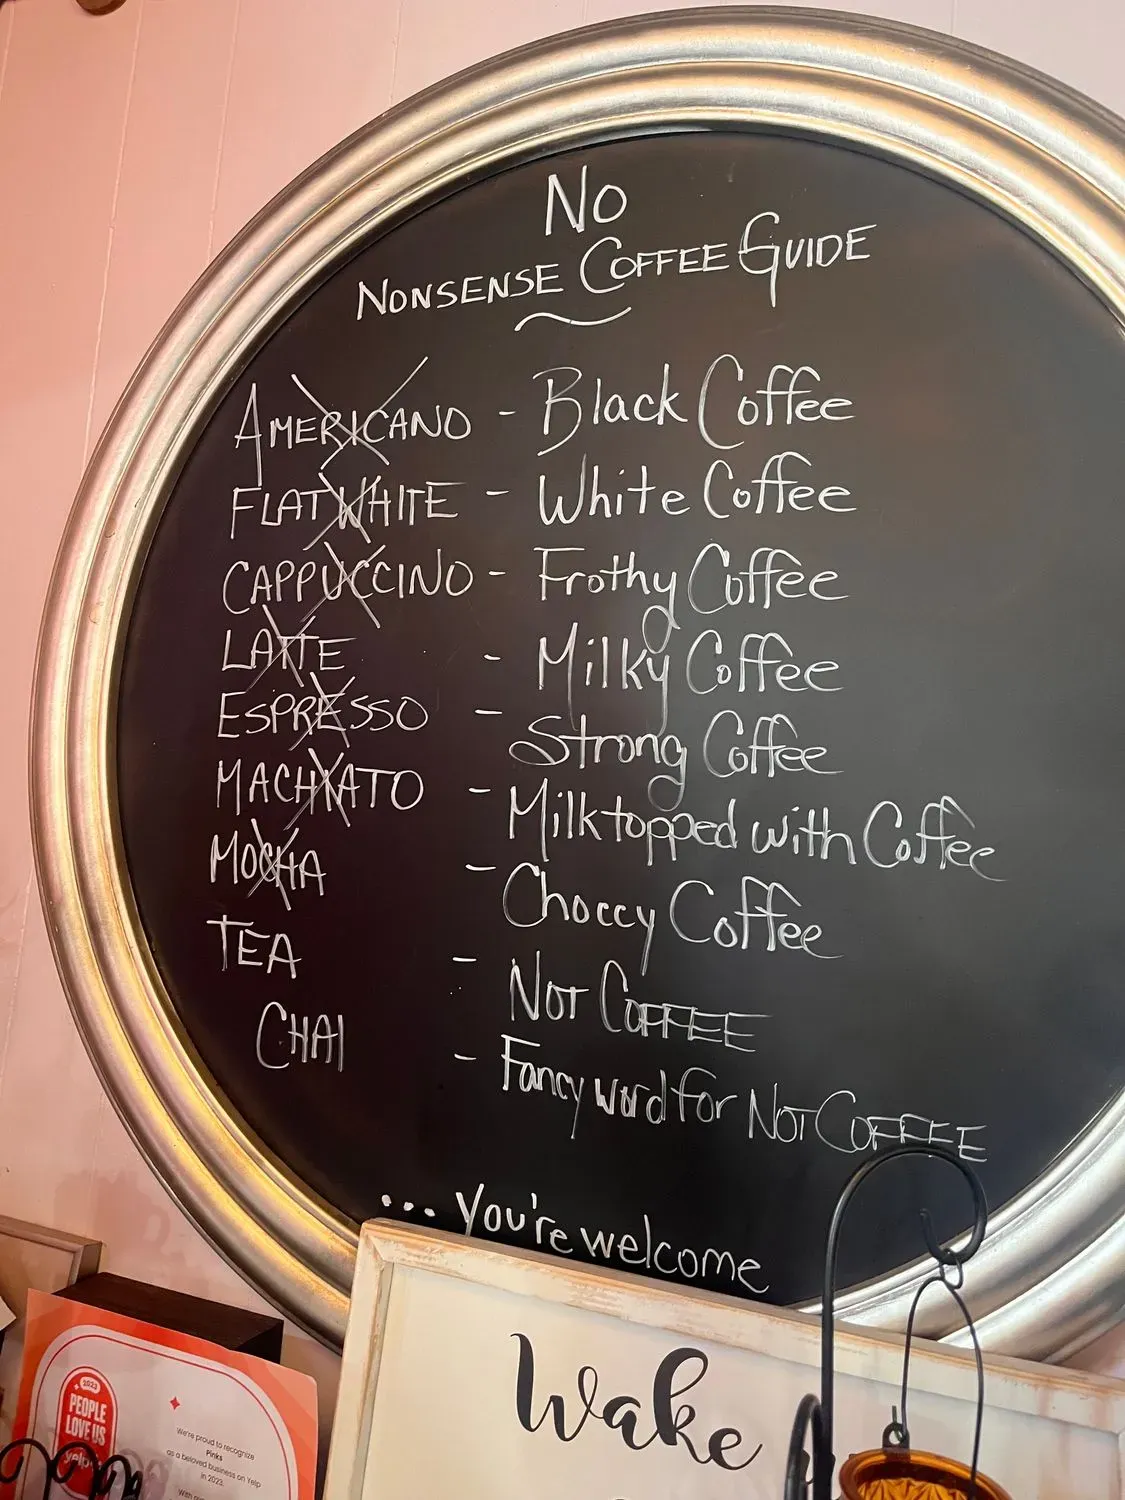 No
NONSENSE COFFEE GUIDE
AMERICANO - Black Coffee
FLAT WHITE - White Coffee
CAPPUCCINO - Frothy Coffee
LATTE - Milky Coffee
ESPRESSO - Strong Coffee
MACHIATO - Milk topped with Coffee
MOCHA - Choccy Coffee
TEA - NOT COFFEE
CHAI - Fancy word for NOT COFFEE
... you're welcome
Wake
2023
PEOPLE
LOVE US
yelp
We're proud to recognize
Pinks
as a beloved business on Yelp
in 2023.
With